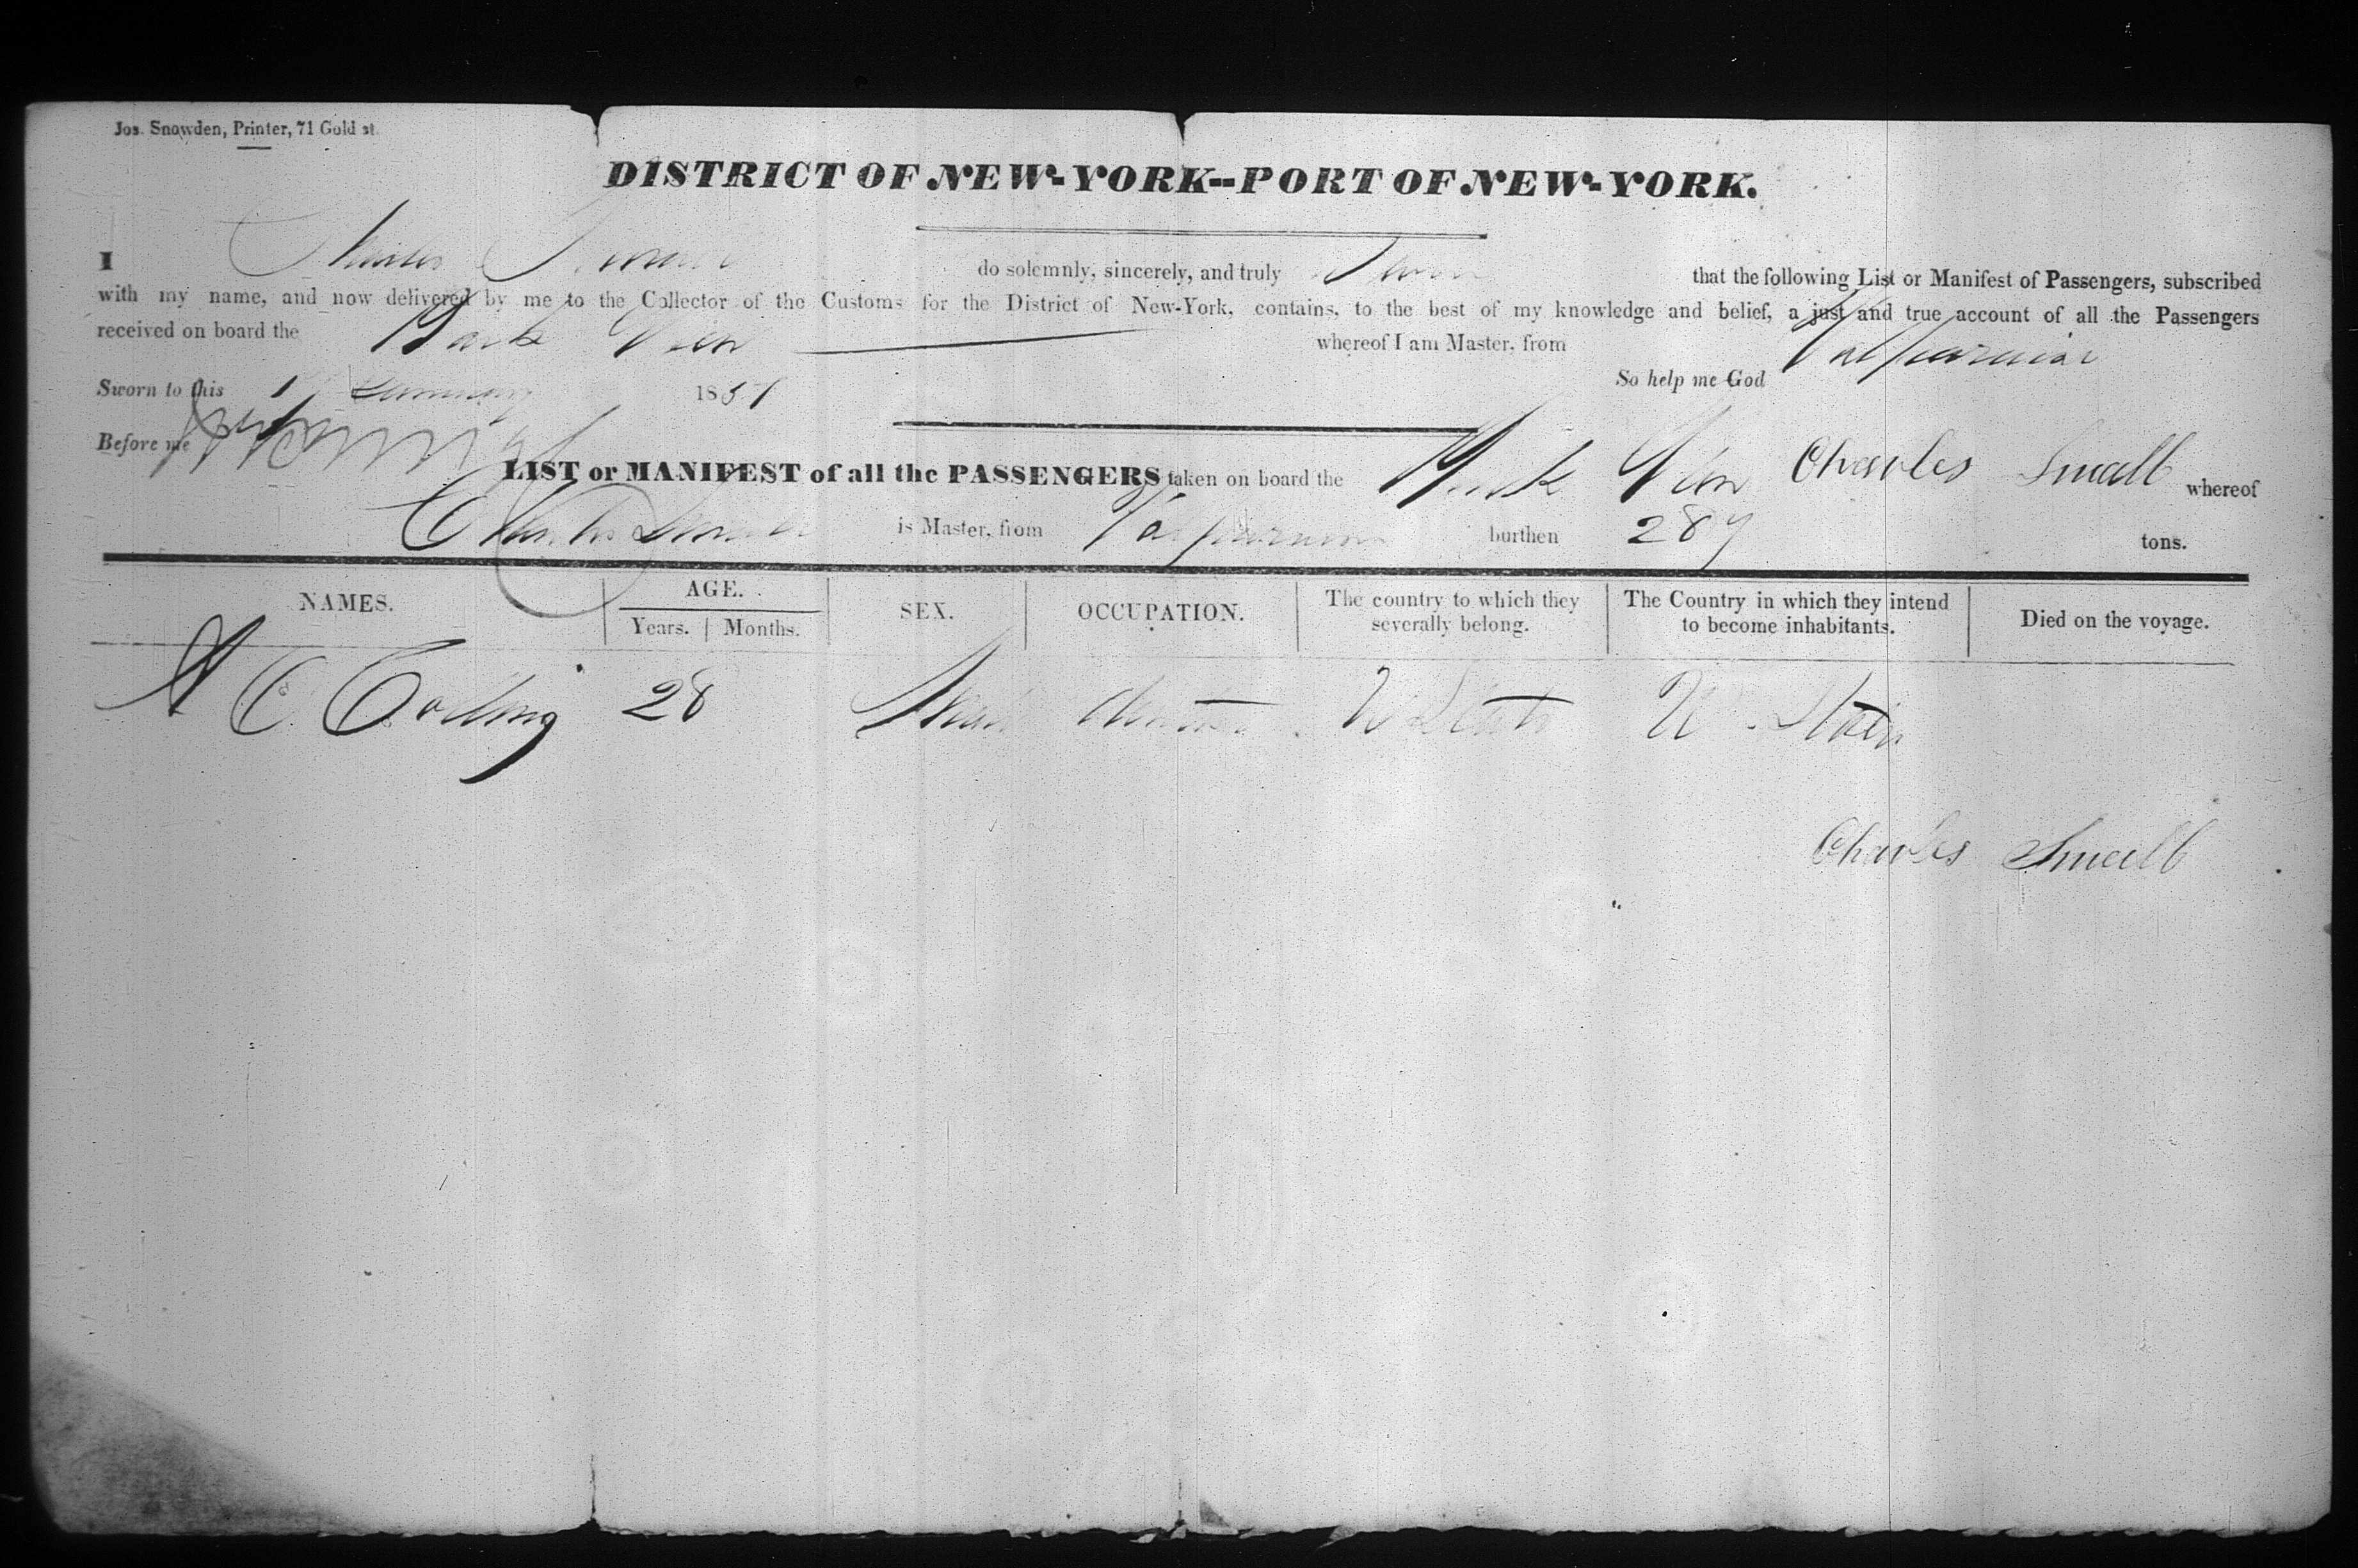 Jos. Snowden, Printer, 71 Gold st.
DISTRICT OF NEW-YORK--PORT OF NEW-YORK.
I Charles Small do solemnly, sincerely, and truly Swear that the following List or Manifest of Passengers, subscribed
with my name, and now delivered by me to the Collector of the Customs for the District of New-York, contains, to the best of my knowledge and belief, a just and true account of all the Passengers
received on board the Bark whereof I am Master, from Valparaiso
Sworn to this January 1851 So help me God
Before me
LIST or MANIFEST of all the PASSENGERS taken on board the Bark Charles Small whereof
Charles Small is Master, from Valparaiso burthen 287 tons.
NAMES. AGE. SEX. OCCUPATION. The country to which they severally belong. The Country in which they intend to become inhabitants. Died on the voyage.
Years. Months.
C 28 Male U States U States
Charles Small